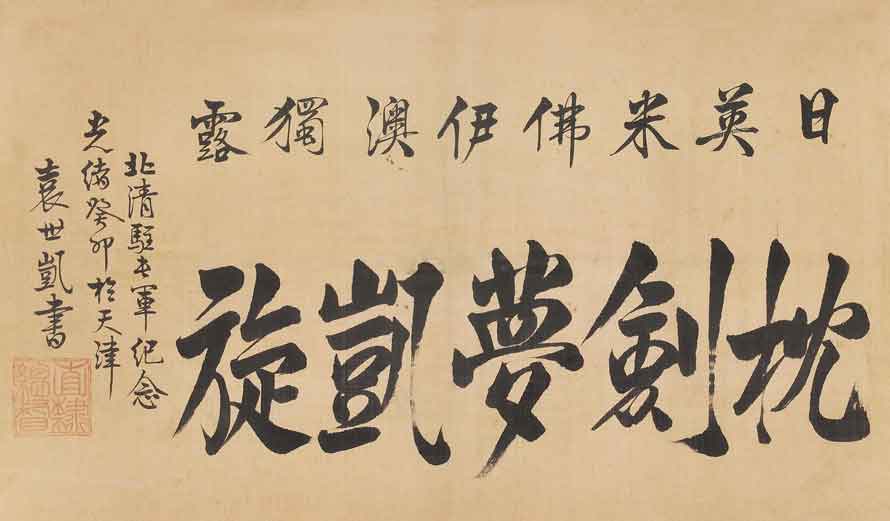 日英米佛伊澳獨露
枕劍夢凱旋
北清駐屯軍紀念
光緒癸卯於天津
袁世凱書
直隸總督